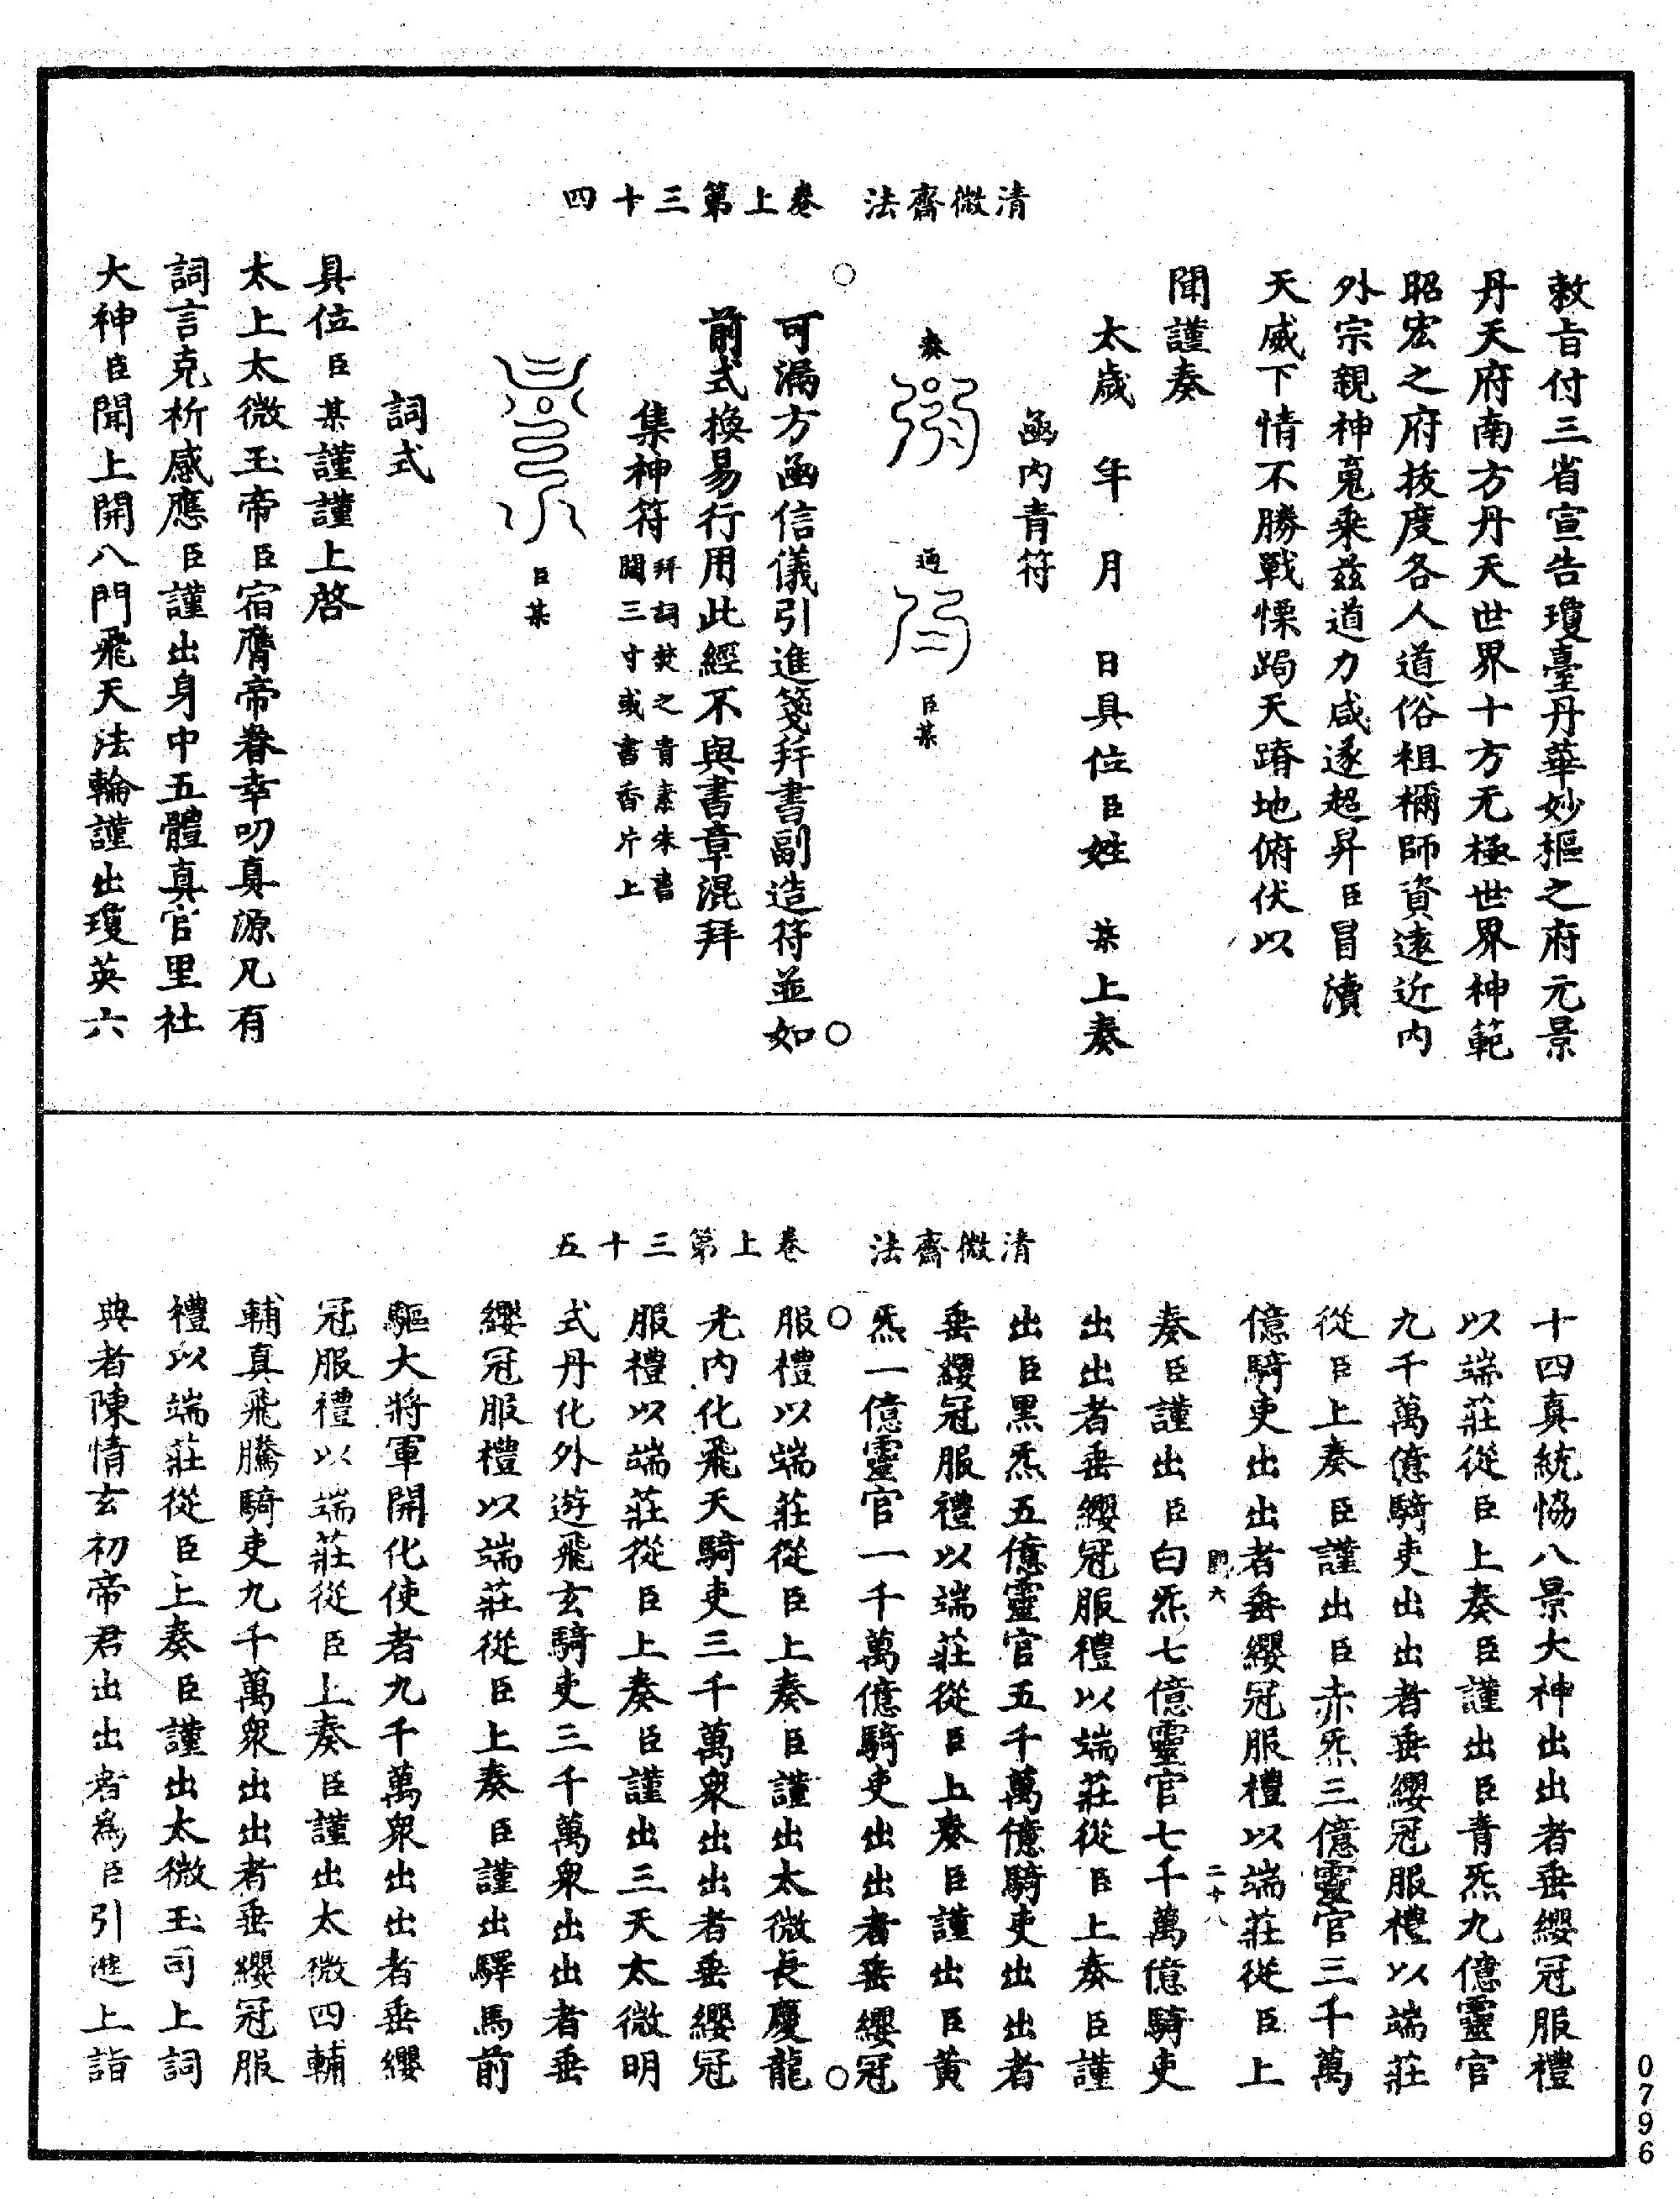 清微齋法　卷上第三十四
敕旨付三省宣告瓊臺丹華妙樞之府元景
丹天府南方丹天世界十方无極世界神範
昭宏之府拔度各人道俗祖禰師資遠近內
外宗親神䰟乘茲道力咸遂超昇臣冒瀆
天威下情不勝戰慄跼天蹐地俯伏以
聞謹奏
太歲　年　月　日具位臣姓　某上奏
凾內青符
奏　迊　臣某
可漏方凾信儀引進箋玕書副造符並如
前式換易行用此經不與書章混拜
集神符拜詞焚之青素朱書
闊三寸或書香片上
臣某
詞式
具位臣某謹謹上啓
太上太微玉帝臣宿膺帝眷幸叨真源凡有
詞言克析感應臣謹出身中五體真官里社
大神臣聞上開八門飛天法輪謹出瓊英六
清微齋法　卷上第三十五
十四真統恊八景大神出出者垂纓冠服禮
以端莊從臣上奏臣謹出臣青炁九億靈官
九千萬億騎吏出出者垂纓冠服禮以端莊
從臣上奏臣謹出臣赤炁三億靈官三千萬
億騎吏出出者垂纓冠服禮以端莊從臣上
奏臣謹出臣白炁七億靈官七千萬億騎吏
出出者垂纓冠服禮以端莊從臣上奏臣謹
出臣黑炁五億靈官五千萬億騎吏出出者
垂纓冠服禮以端莊從臣上奏臣謹出臣黃
炁一億靈官一千萬億騎吏出出者垂纓冠
服禮以端莊從臣上奏臣謹出太微長慶龍
光內化飛天騎吏三千萬衆出出者垂纓冠
服禮以端莊從臣上奏臣謹出三天太微明
式丹化外遊飛玄騎吏三千萬衆出出者垂
纓冠服禮以端莊從臣上奏臣謹出驛馬前
驅大將軍開化使者九千萬衆出出者垂纓
冠服禮以端莊從臣上奏臣謹出太微四輔
輔真飛騰騎吏九千萬衆出出者垂纓冠服
禮以端莊從臣上奏臣謹出太微玉司上詞
典者陳情玄初帝君出出者為臣引進上詣
二十八
0796